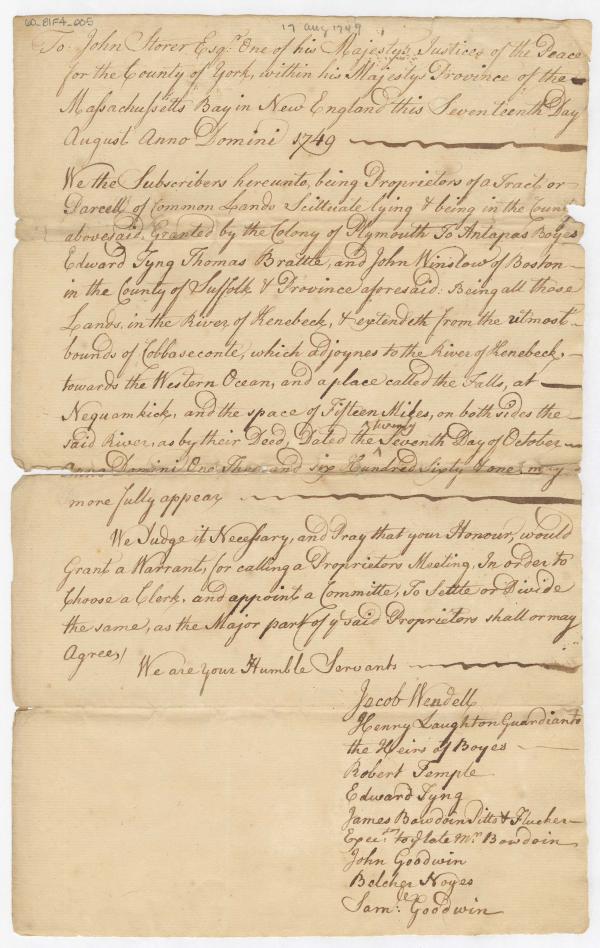 60_81F4_005
17 Aug 1749
To John Storer Esqr. One of his Majesty's Justices of the Peace
for the County of York, within his Majestys Province of the
Massachusetts Bay in New England this Seventeenth Day
August Anno Domini 1749
We the Subscribers hereunto, being Proprietors of a Tract or
Parcell of Common Lands Scittuate lying & being in the County
abovesaid, Granted by the Colony of Plymouth To Antapas Boyes
Edward Tyng Thomas Brattle, and John Winslow of Boston
in the County of Suffolk & Province aforesaid: Being all those
Lands, in the River of Kenebeck, & extendeth from the utmost
bounds of Cobbaseconte, which adjoynes to the River of Kenebeck,
towards the Western Ocean, and a place called the Falls, at
Nequamkick, and the space of Fifteen Miles, on both sides the
twenty
said River, as by their Deed, Dated the Seventh Day of October
Anno Domini One and six Hundred Sixty & one, may
more fully appear
We Judge it Necessary, and Pray that your Honour, would
Grant a Warrant, for calling a Proprietors Meeting, In order to
Choose a Clerk, and appoint a Committe, To Settle or Divide
the same, as the Major part of ye said Proprietors shall or may
Agree,
We are your Humble Servants
Jacob Wendell
Henry Laughton Guardian to
the Heirs of Boyes
Robert Temple
Edward Tyng
James Bowdoin Pitts & Flucker
Execrs. to ye late Mr. Bowdoin
John Goodwin
Belcher Noyes
Saml. Goodwin